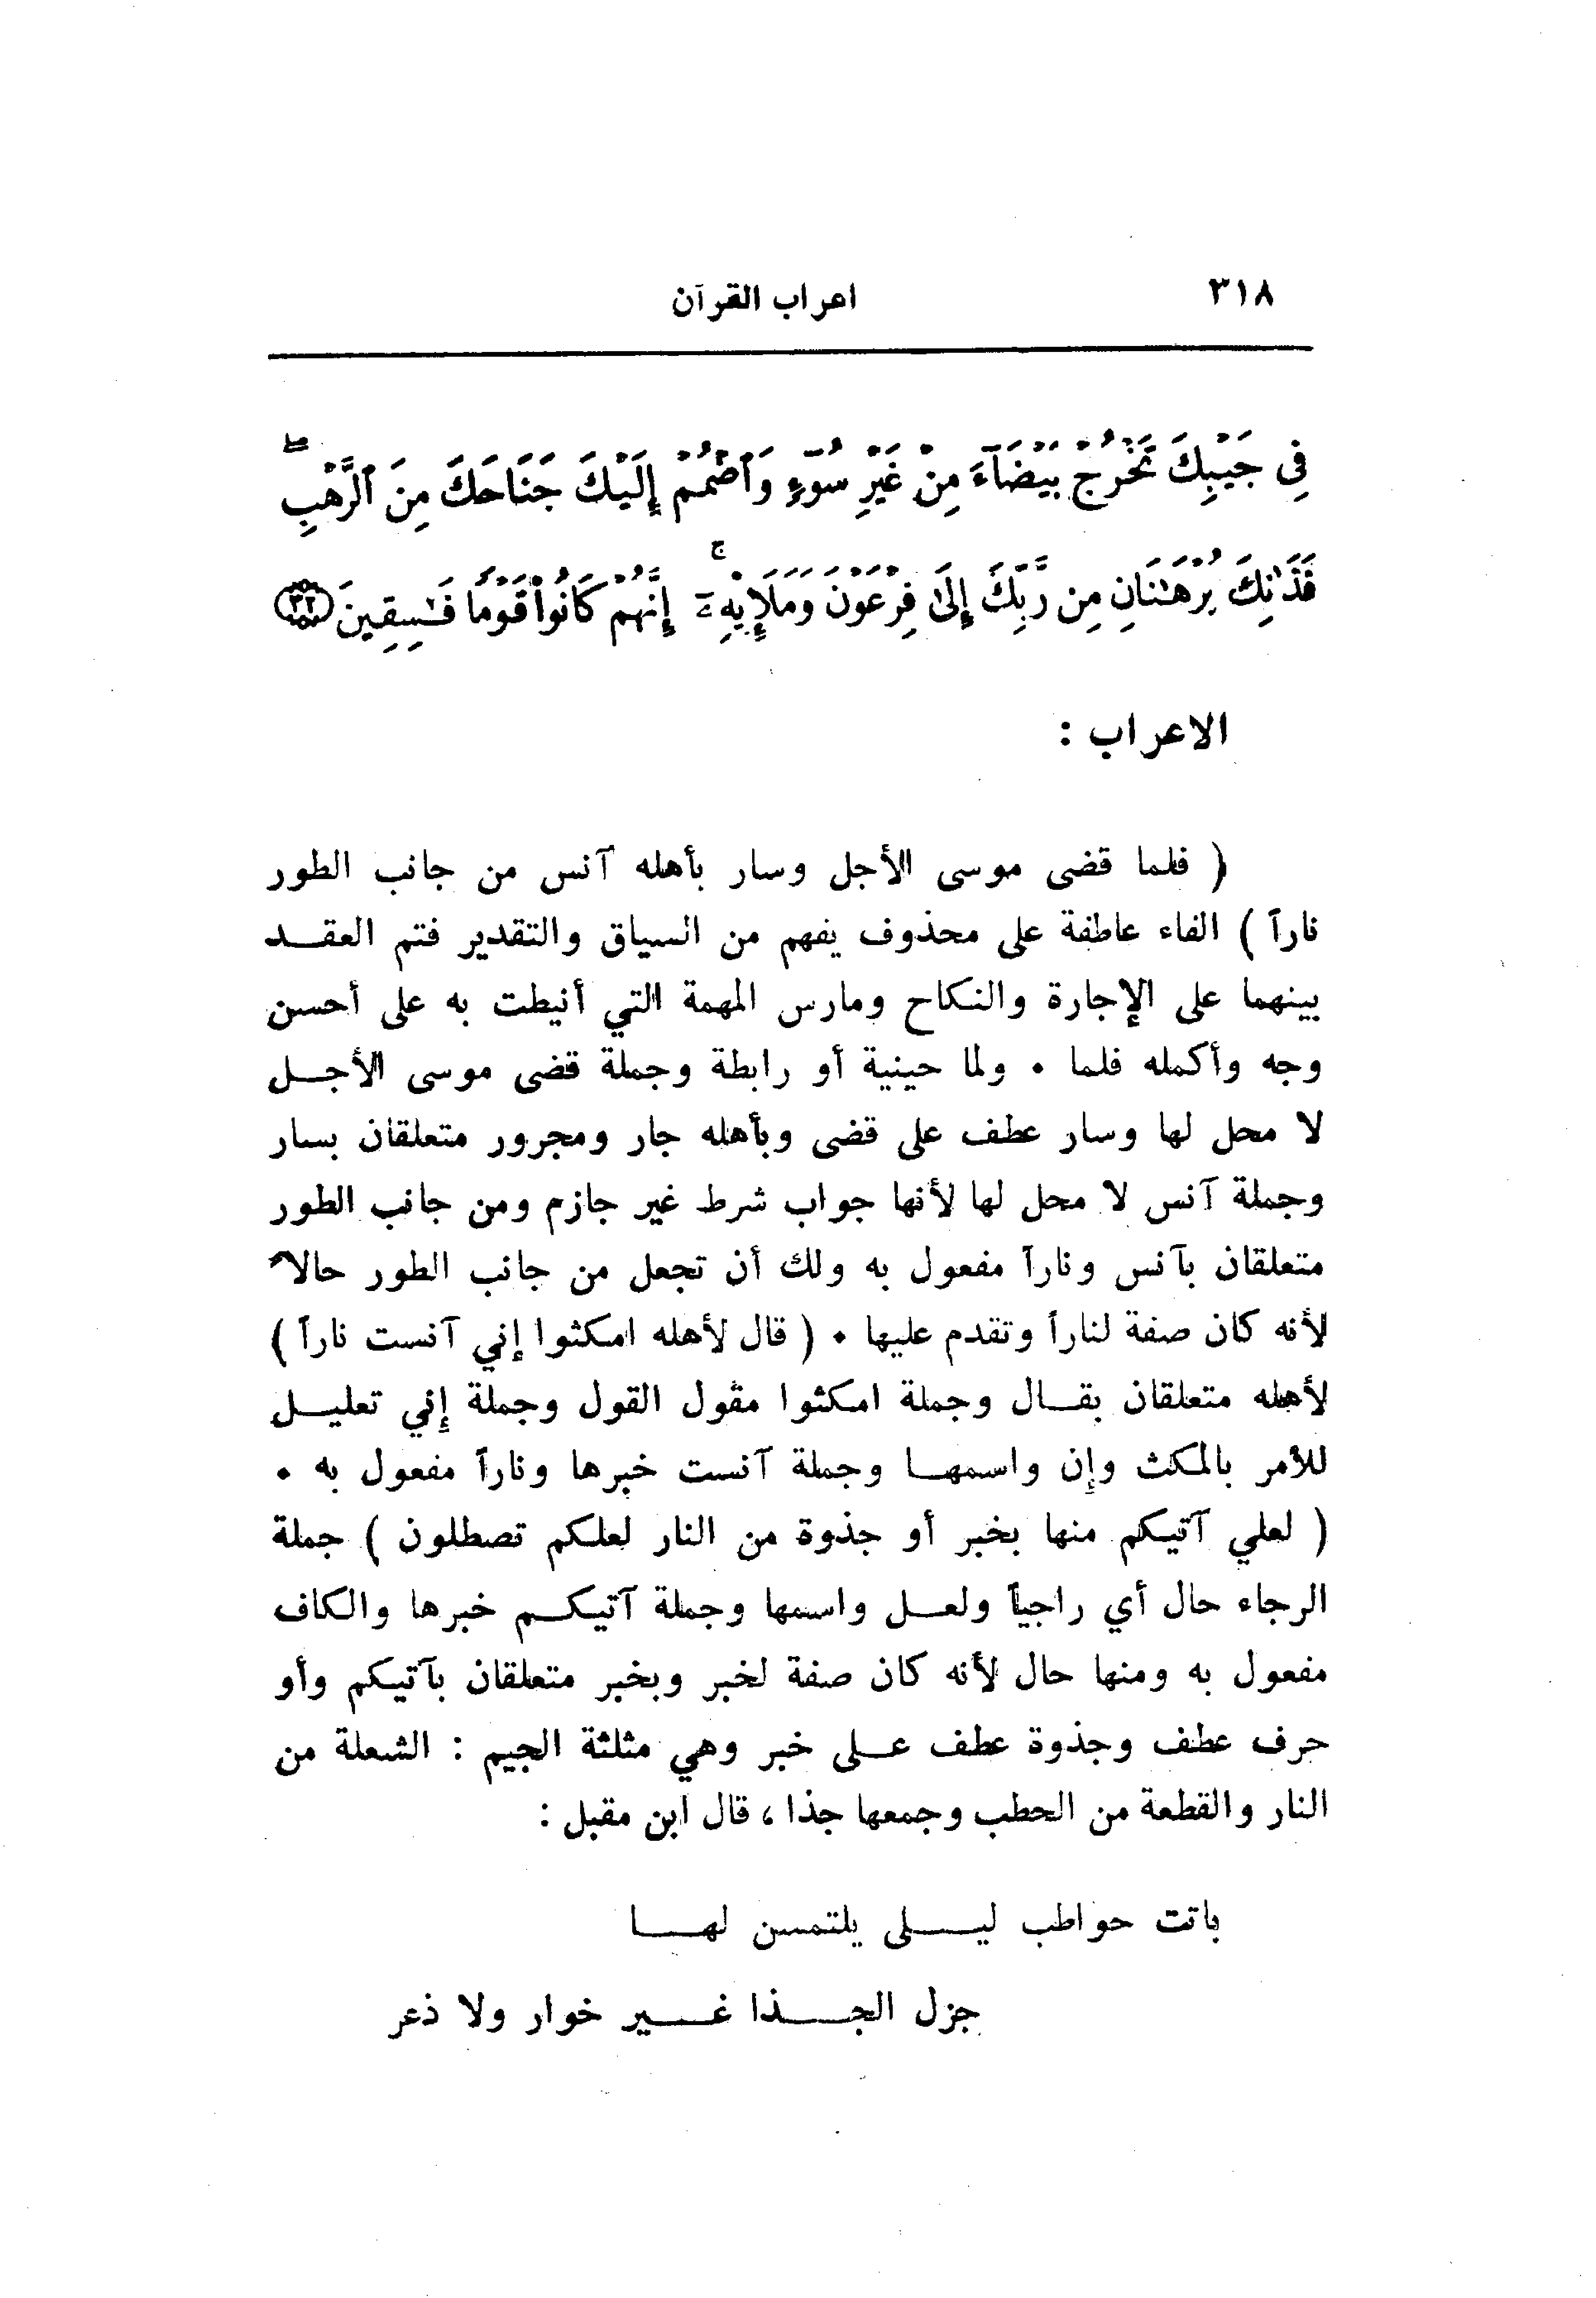 ٣١٨
اعراب القرآن
فِي جَيْبِكَ تَخْرُجْ بَيْضَآءَ مِنْ غَيْرِ سُوٓءٍ وَٱضْمُمْ إِلَيْكَ جَنَاحَكَ مِنَ ٱلرَّهْبِ ۖ
فَذَٰنِكَ بُرْهَٰنَانِ مِن رَّبِّكَ إِلَىٰ فِرْعَوْنَ وَمَلَإِيْهِۦٓ ۚ إِنَّهُمْ كَانُوا۟ قَوْمًا فَٰسِقِينَ ﴿٣٢﴾
الاعراب :
( فلما قضى موسى الأجل وسار بأهله آنس من جانب الطور
ناراً ) الفاء عاطفة على محذوف يفهم من السياق والتقدير فتم العقــد
بينهما على الإجارة والنكاح ومارس المهمة التي أنيطت به على أحسن
وجه وأكمله فلما ٠ ولما حينية أو رابطة وجملة قضى موسى الأجــل
لا محل لها وسار عطف على قضى وبأهله جار ومجرور متعلقان بسار
وجملة آنس لا محل لها لأنها جواب شرط غير جازم ومن جانب الطور
متعلقان بآنس وناراً مفعول به ولك أن تجعل من جانب الطور حالاً
لأنه كان صفة لناراً وتقدم عليها ٠ ( قال لأهله امكثوا إني آنست ناراً )
لأهله متعلقان بقــال وجملة امكثوا مقول القول وجملة إني تعليــل
للأمر بالمكث وإن واسمهــا وجملة آنست خبرها وناراً مفعول به ٠
( لعلي آتيكم منها بخبر أو جذوة من النار لعلكم تصطلون ) جملة
الرجاء حال أي راجياً ولعــل واسمها وجملة آتيكــم خبرها والكاف
مفعول به ومنها حال لأنه كان صفة لخبر وبخبر متعلقان بآتيكم وأو
حرف عطف وجذوة عطف عــلى خبر وهي مثلثة الجيم : الشعلة من
النار والقطعة من الحطب وجمعها جذا ، قال ابن مقبل :
باتت حواطب ليــــلى يلتمسن لهــــا
جزل الجــــذا غــــير خوار ولا ذعر